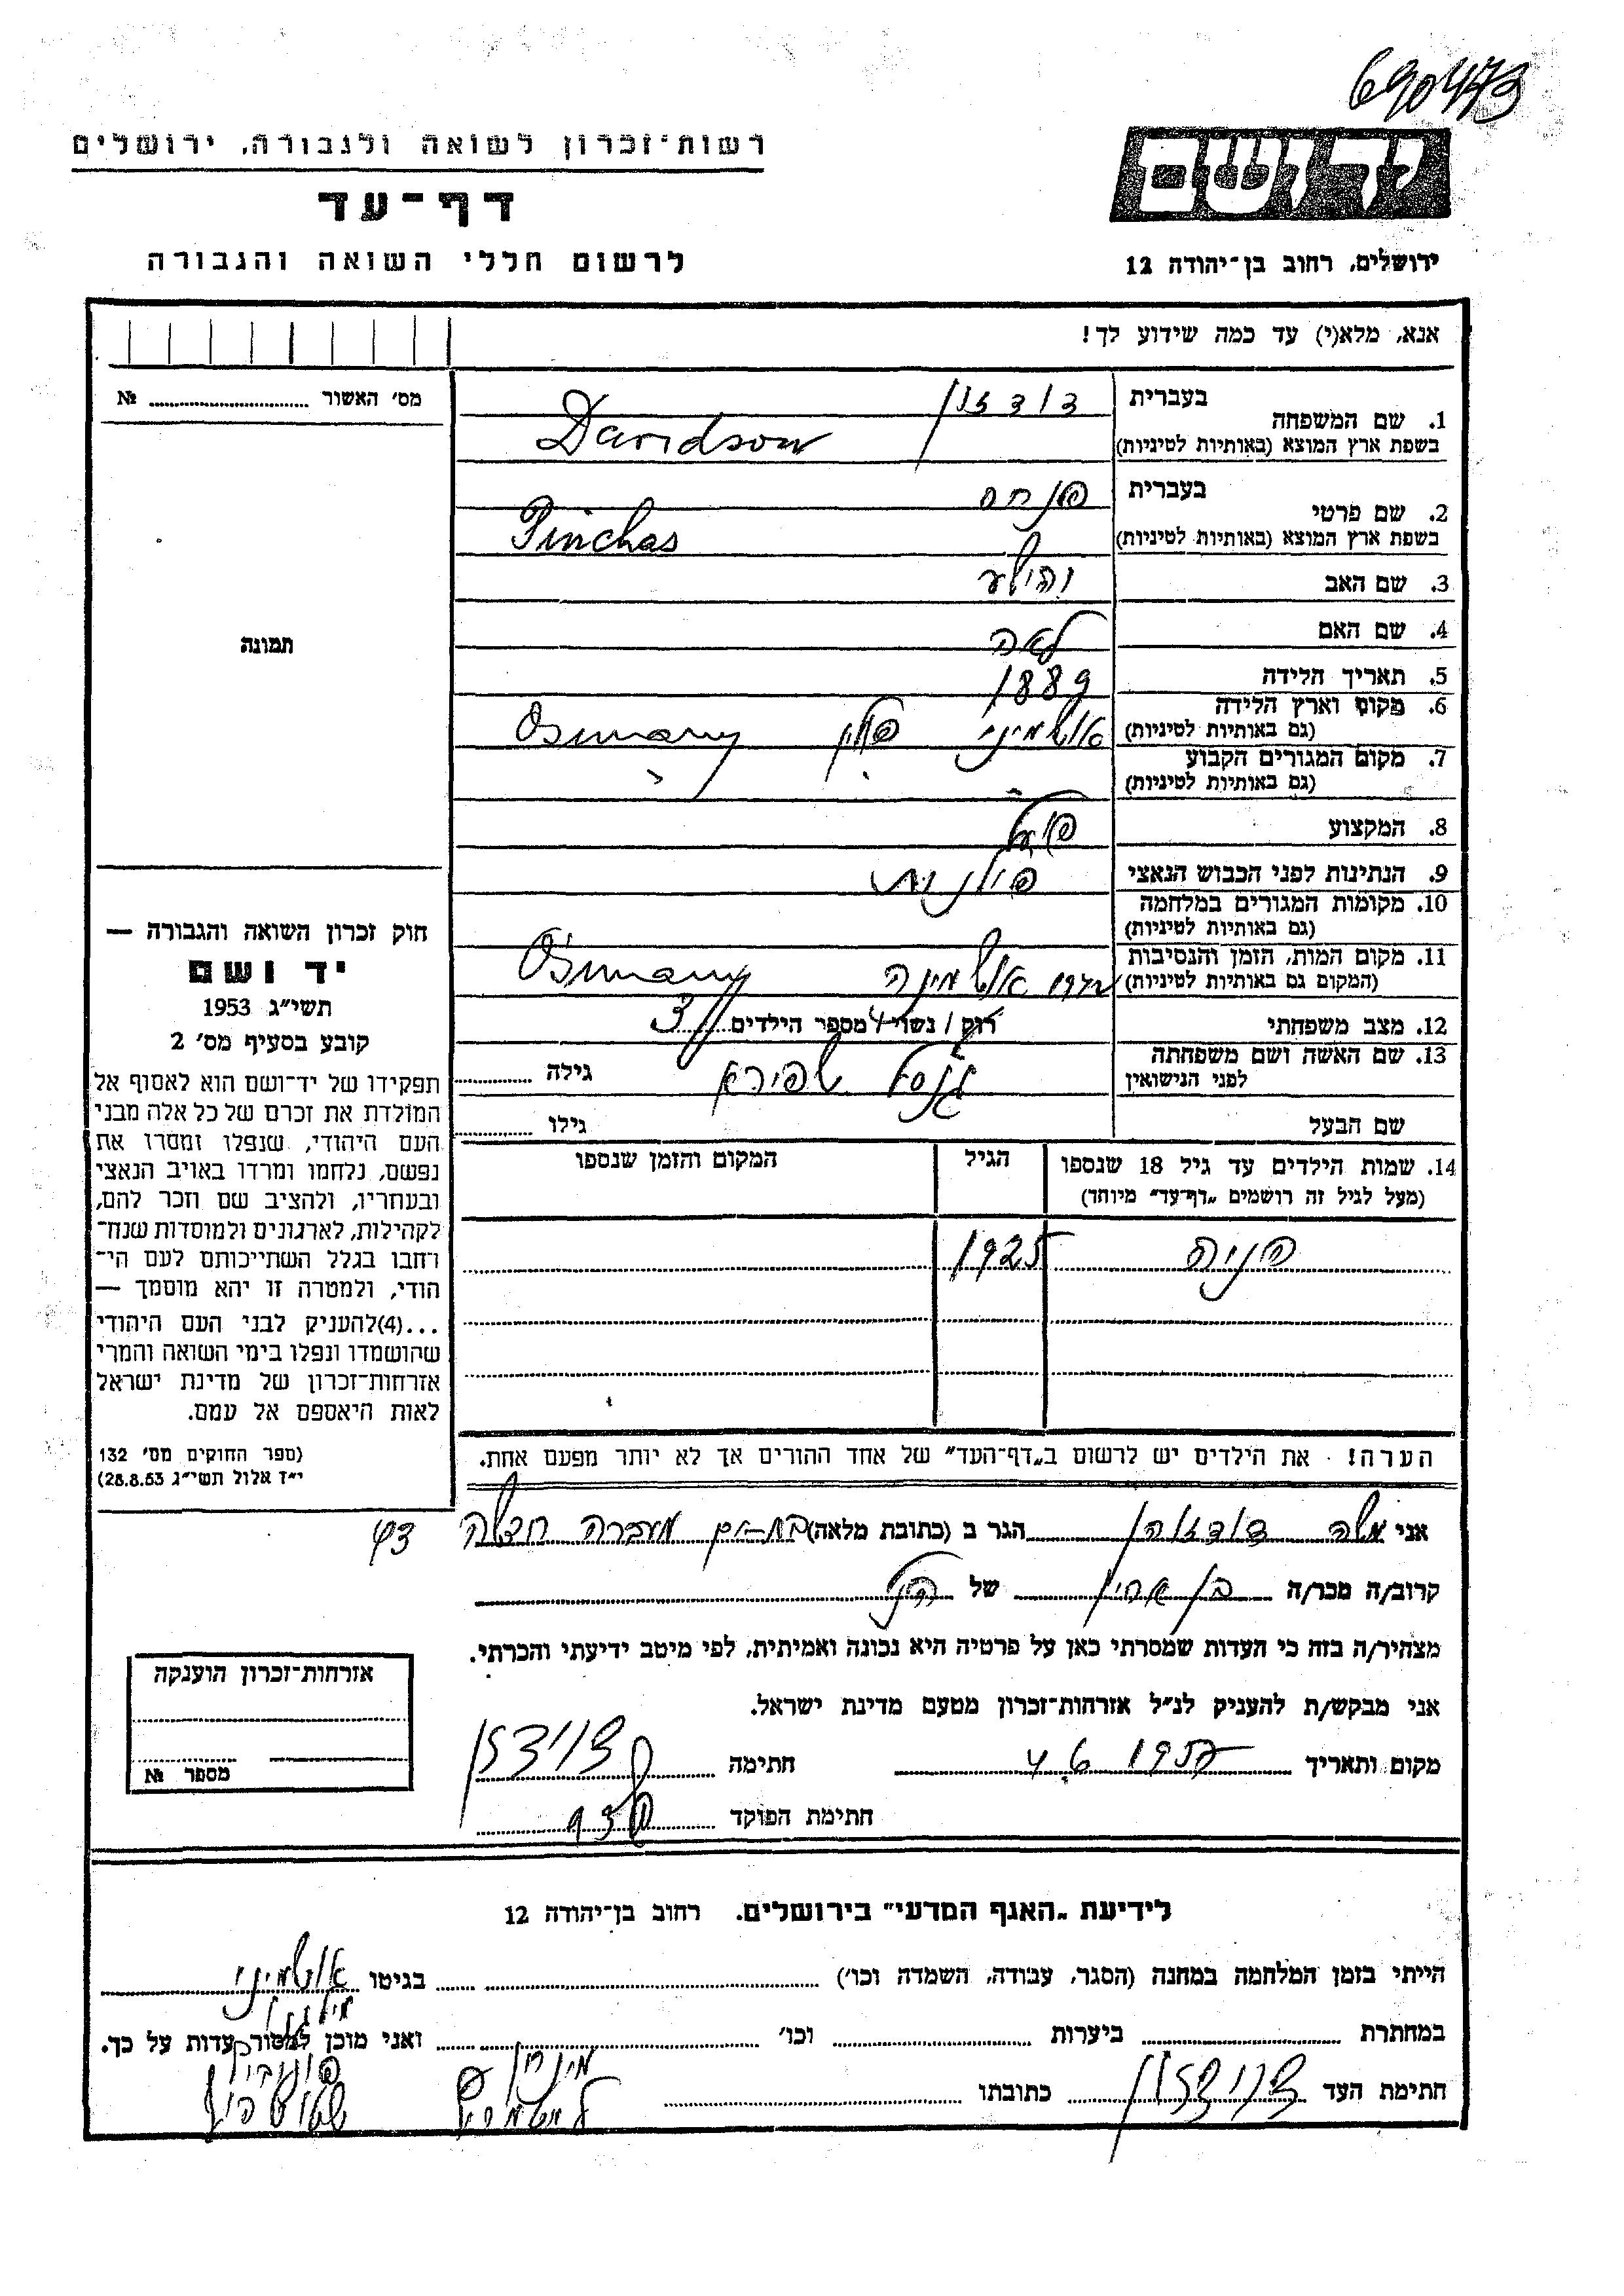 690473
רשות־זכרון לשואה ולגבורה, ירושלים
דף־עד
לרשום חללי השואה והגבורה
יד ושם
ירושלים, רחוב בן־יהודה 12
אנא, מלא(י) עד כמה שידוע לך!
מס׳ האשור № 
תמונה
חוק זכרון השואה והגבורה —
יד ושם
תשי״ג 1953
קובע בסעיף מס׳ 2
תפקידו של יד־ושם הוא לאסוף אל
המולדת את זכרם של כל אלה מבני
העם היהודי, שנפלו ומסרו את
נפשם, נלחמו ומרדו באויב הנאצי
ובעוזריו, ולהציב שם וזכר להם,
לקהילות, לארגונים ולמוסדות שנח־
רחבו בגלל השתייכותם לעם הי־
הודי, ולמטרה זו יהא מוסמך —
...(4)להעניק לבני העם היהודי
שהושמדו ונפלו בימי השואה והמרי
אזרחות־זכרון של מדינת ישראל
לאות היאספם אל עמם.
(ספר החוקים מס׳ 132
י״ז אלול תשי״ג 28.8.53)
1. שם המשפחה
בעברית דודזון
בשפת ארץ המוצא (באותיות לטיניות) Davidson
2. שם פרטי
בעברית פנחס
בשפת ארץ המוצא (באותיות לטיניות) Pinchas
3. שם האב
4. שם האם לאה
5. תאריך הלידה 1889
6. מקום וארץ הלידה אושמיני פולין Osmany
(גם באותיות לטיניות)
7. מקום המגורים הקבוע
(גם באותיות לטיניות)
8. המקצוע פועל
9. הנתינות לפני הכבוש הנאצי פולנית
10. מקומות המגורים במלחמה
(גם באותיות לטיניות)
11. מקום המות, הזמן והנסיבות אושמינה Osmany
(המקום גם באותיות לטיניות)
12. מצב משפחתי רוק / נשוי / מספר הילדים 3
13. שם האשה ושם משפחתה שפירא גילה
לפני הנישואין
שם הבעל גילו
14. שמות הילדים עד גיל 18 שנספו הגיל המקום והזמן שנספו
(מעל לגיל זה רושמים „דף־עד״ מיוחד)
פניה 1925
הערה! את הילדים יש לרשום ב„דף־העד״ של אחד ההורים אך לא יותר מפעם אחת.
אני משה דודזון הגר ב (כתובת מלאה) בת-ים מעברה חדשה 43
קרוב/ה מכר/ה בן אחיו של הנ״ל
מצהיר/ה בזה כי העדות שמסרתי כאן על פרטיה היא נכונה ואמיתית, לפי מיטב ידיעתי והכרתי.
אני מבקש/ת להעניק לנ״ל אזרחות־זכרון מטעם מדינת ישראל.
מקום ותאריך 4.6.1957 חתימה דוידזון
חתימת הפוקד
אזרחות־זכרון הוענקה
מספר №
לידיעת „האגף המדעי״ בירושלים. רחוב בן־יהודה 12
הייתי בזמן המלחמה במחנה (הסגר, עבודה, השמדה וכו׳) בגיטו אושמיני
במחתרת ביערות וכו׳ ואני מוכן למסור עדות על כך.
חתימת העד דוידזון כתובתו